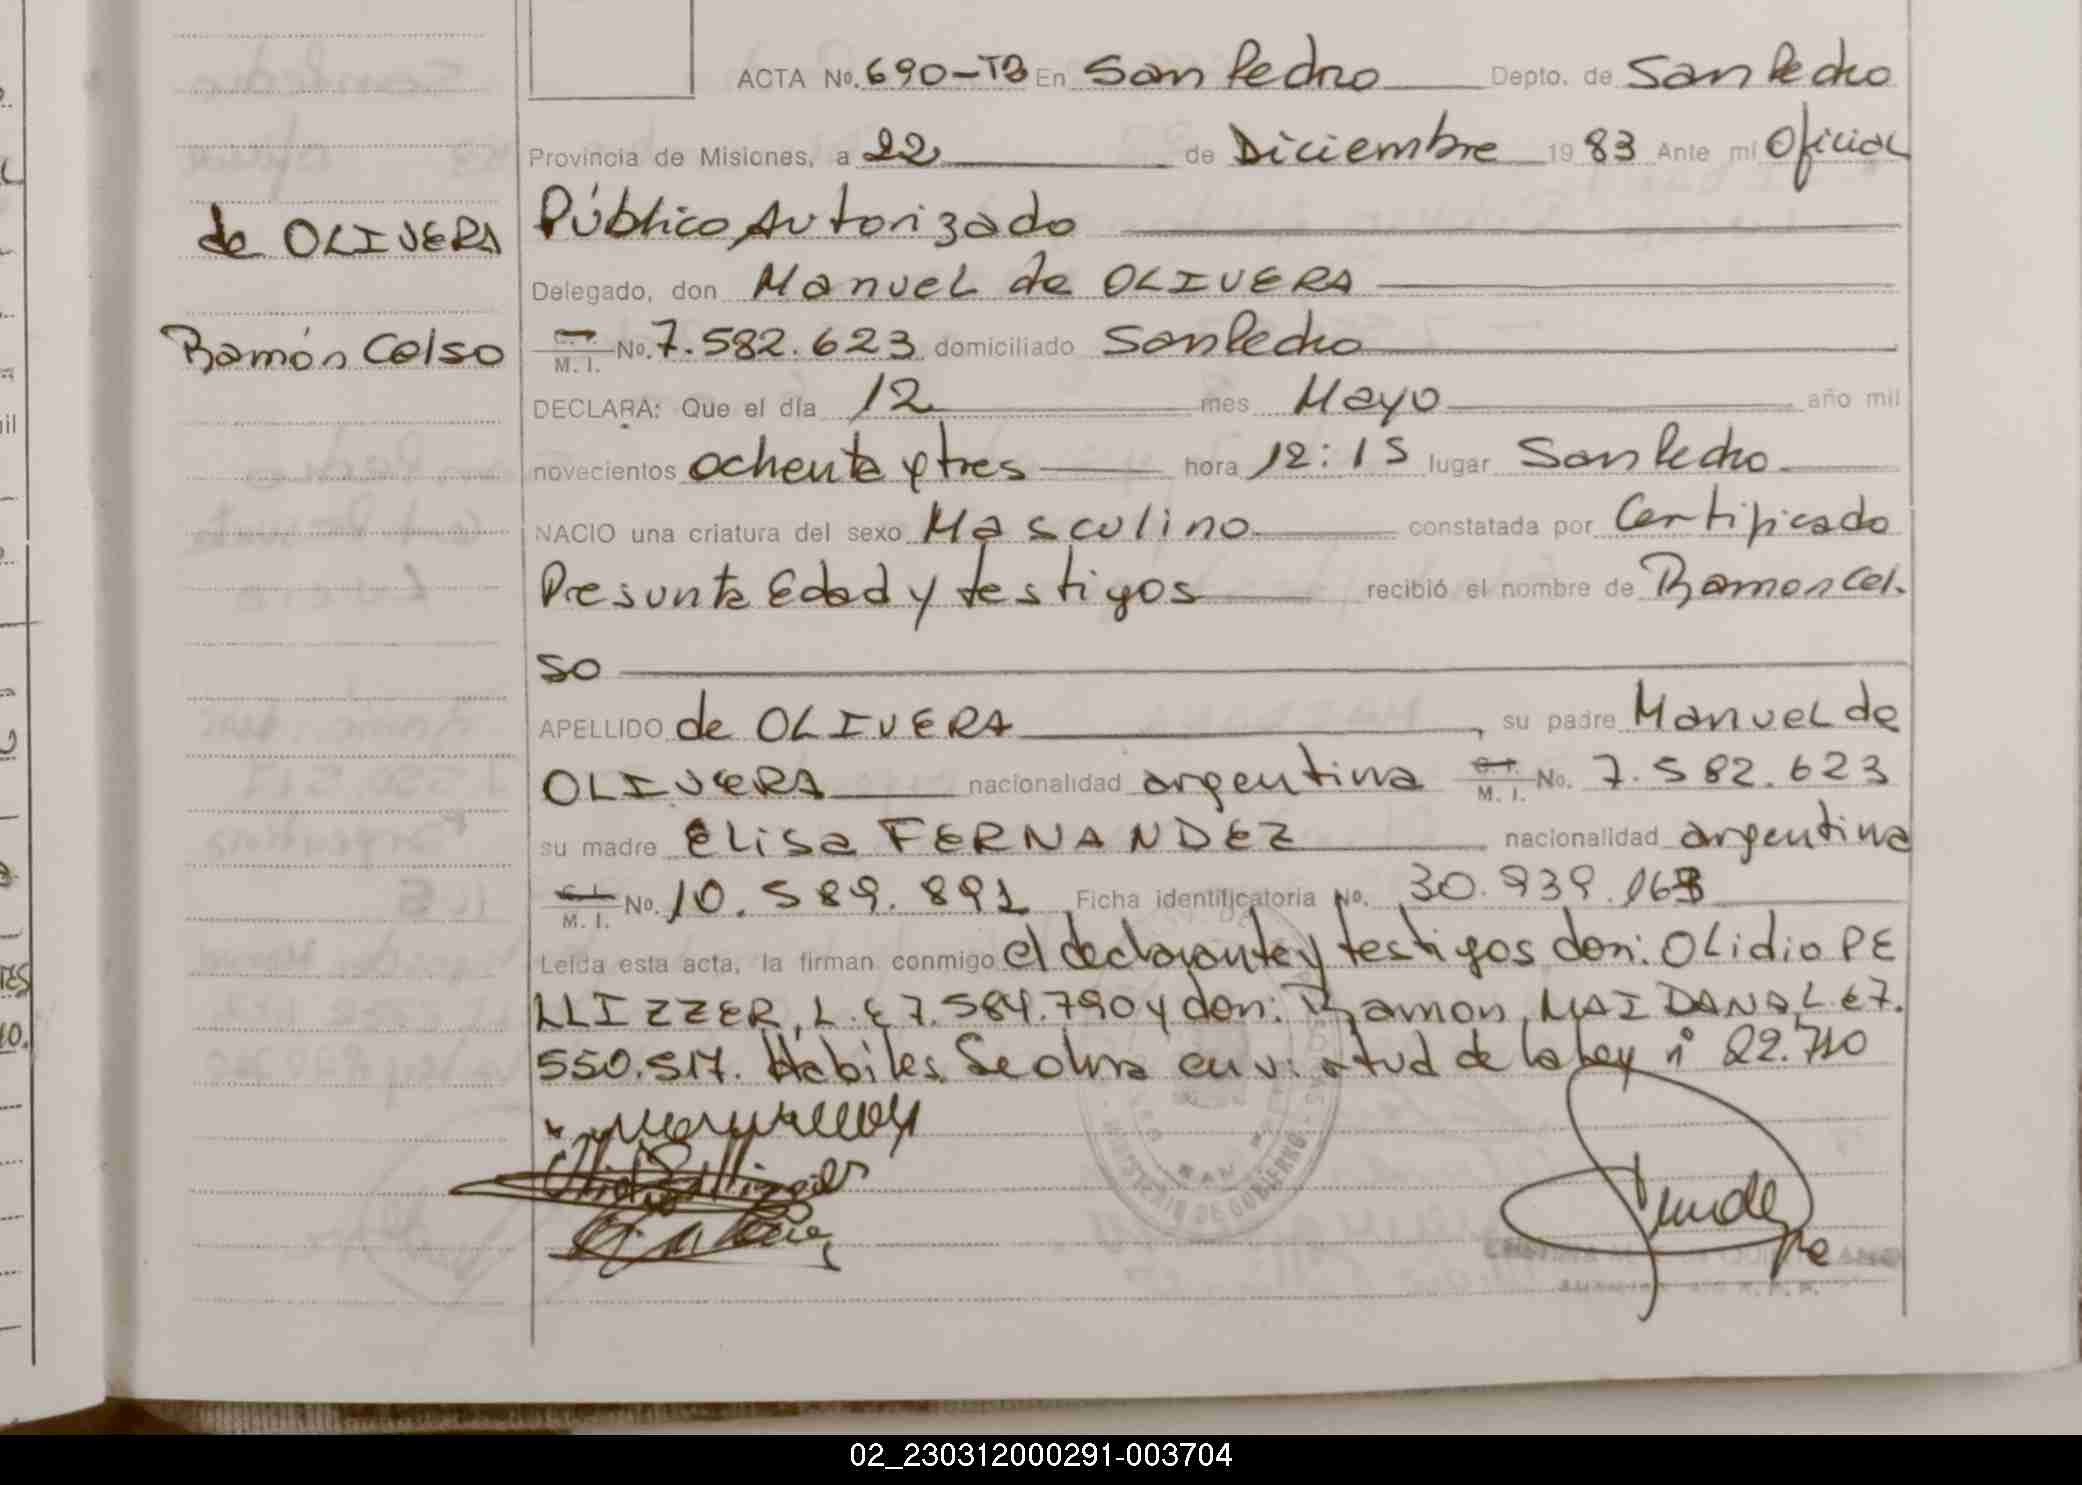 ACTA No. 690-TB En San Pedro Depto. de San Pedro
Provincia de Misiones, a 22 de Diciembre 1983 Ante mi Oficial
Público Autorizado
de OLIVERA
Delegado, don Manuel de OLIVERA
Ramón Celso
C. I. M. I. No. 7.582.623 domiciliado San Pedro
DECLARA: Que el día 12 mes Mayo año mil
novecientos ochenta y tres hora 12:15 lugar San Pedro
NACIO una criatura del sexo Masculino constatada por Certificado
Presunta Edad y testigos recibió el nombre de Ramon Cel-
so
APELLIDO de OLIVERA, su padre Manuel de
OLIVERA nacionalidad argentina C. I. M. I. No. 7.582.623
su madre Elisa FERNANDEZ nacionalidad argentina
C. I. M. I. No. 10.589.891 Ficha identificatoria No. 30.939.163
Leída esta acta, la firman conmigo el declarante y testigos don: OLidio PE
LLIZZER, L.E 7.584.790 y don: Ramon MAIDANA L.E 7.
550.517. Hábiles. Se obra en virtud de la Ley n° 22.710
MINISTERIO DE GOBIERNO
02_230312000291-003704